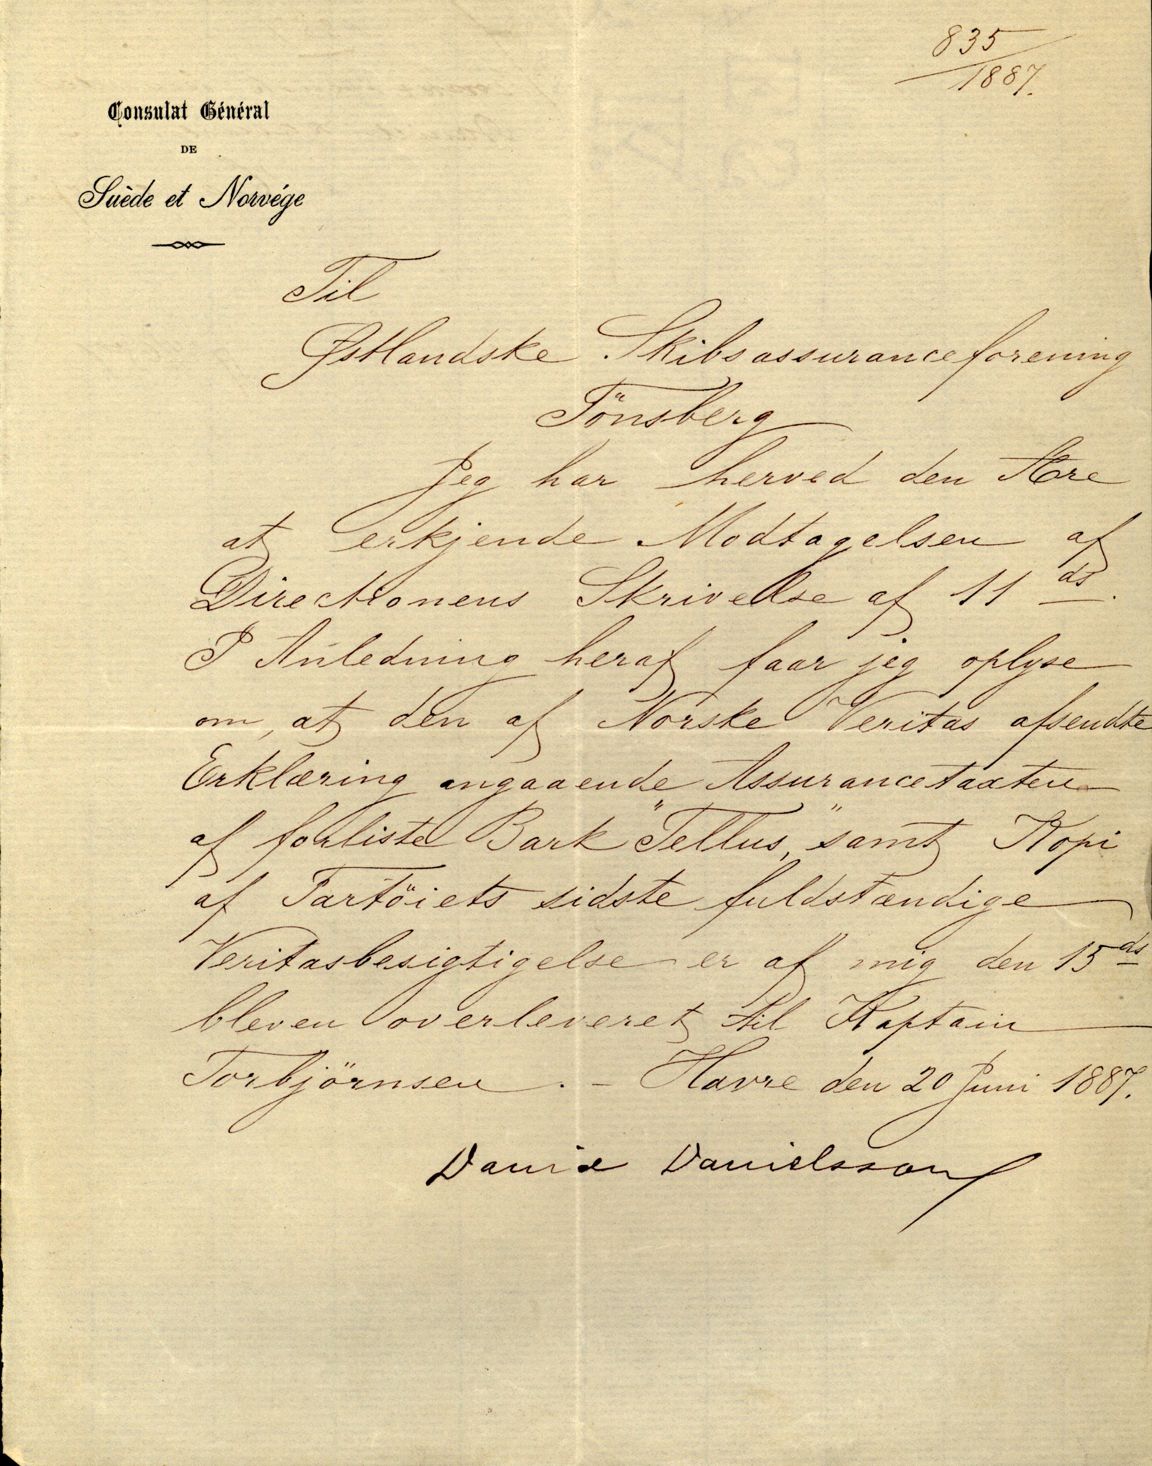 835
1887.
Consulat Général
DE
Suède et Norvége
Til
Østlandske Skibsassuranceforening
Tönsberg
Jeg har herved den Ære
at erkjende Modtagelsen af
Directionens Skrivelse af 11 ds.
I Anledning heraf faar jeg oplyse
om, at den af Norske Veritas afsendte
Erklæring angaaende Assurancetaxten
af forliste Bark "Tellus," samt Kopi
af Fartöiets sidste fuldstændige
Veritasbesigtigelse er af mig den 15 ds
bleven overleveret til Kaptain
Torbjörnsen. – Havre den 20 Juni 1887.
David Danielsson